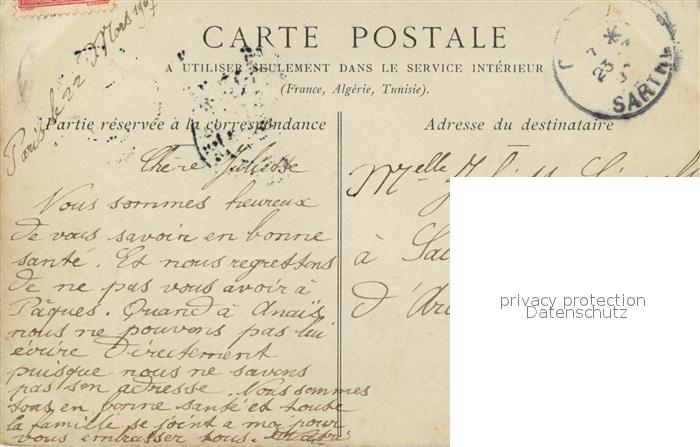 Paris le 22 Mars 1907
CARTE POSTALE
A UTILISER SEULEMENT DANS LE SERVICE INTÉRIEUR
(France, Algérie, Tunisie).
Partie réservée à la correspondance
Adresse du destinataire
SARTHE
23
Chère
Nous sommes heureux
de vous savoir en bonne
santé. Et nous regrettons
de ne pas vous avoir à
Pâques. Quand à Anaïs
nous ne pouvons pas lui
écrire directement
puisque nous ne savons
pas son adresse. Nous sommes
tous en bonne santé et toute
la famille se joint a moi pour
vous embrasser tous.
Melle
à
d'
privacy protection
Datenschutz